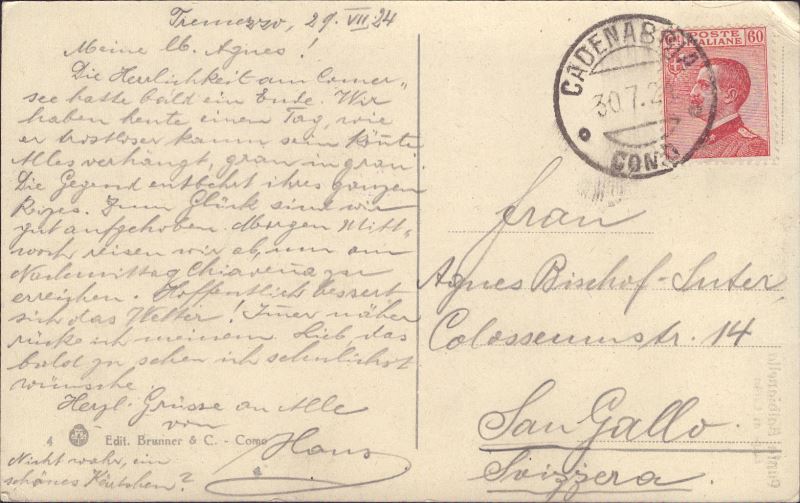 Tremezzo, 29. VII. 24
Meine lb. Agnes!
Die Herrlichkeit am Comer-
see hatte bald ein Ende. Wir
haben heute einen Tag, wie
er trostloser kaum sein könnte
Alles verhängt, grau in grau.
Die Gegend entbehrt ihres ganzen
Reizes. Zum Glück sind wir
gut aufgehoben. Morgen Mitt-
woch reisen wir ab, um am
Nachmittag Chiavenna zu
erreichen. Hoffentlich bessert
sich das Wetter! Immer näher
rücke ich meinem Lieb, das
bald zu sehen ich sehnlichst
wünsche.
Herzl. Grüsse an Alle
von
Hans
4 Edit. Brunner & C. - Como
Nicht wahr, ein
schönes Kärtchen?
CADENABBIA
30.7.24
COMO
POSTE ITALIANE 60
Frau
Agnes Bischof-Suter,
Colosseumstr. 14
San Gallo
Svizzera.